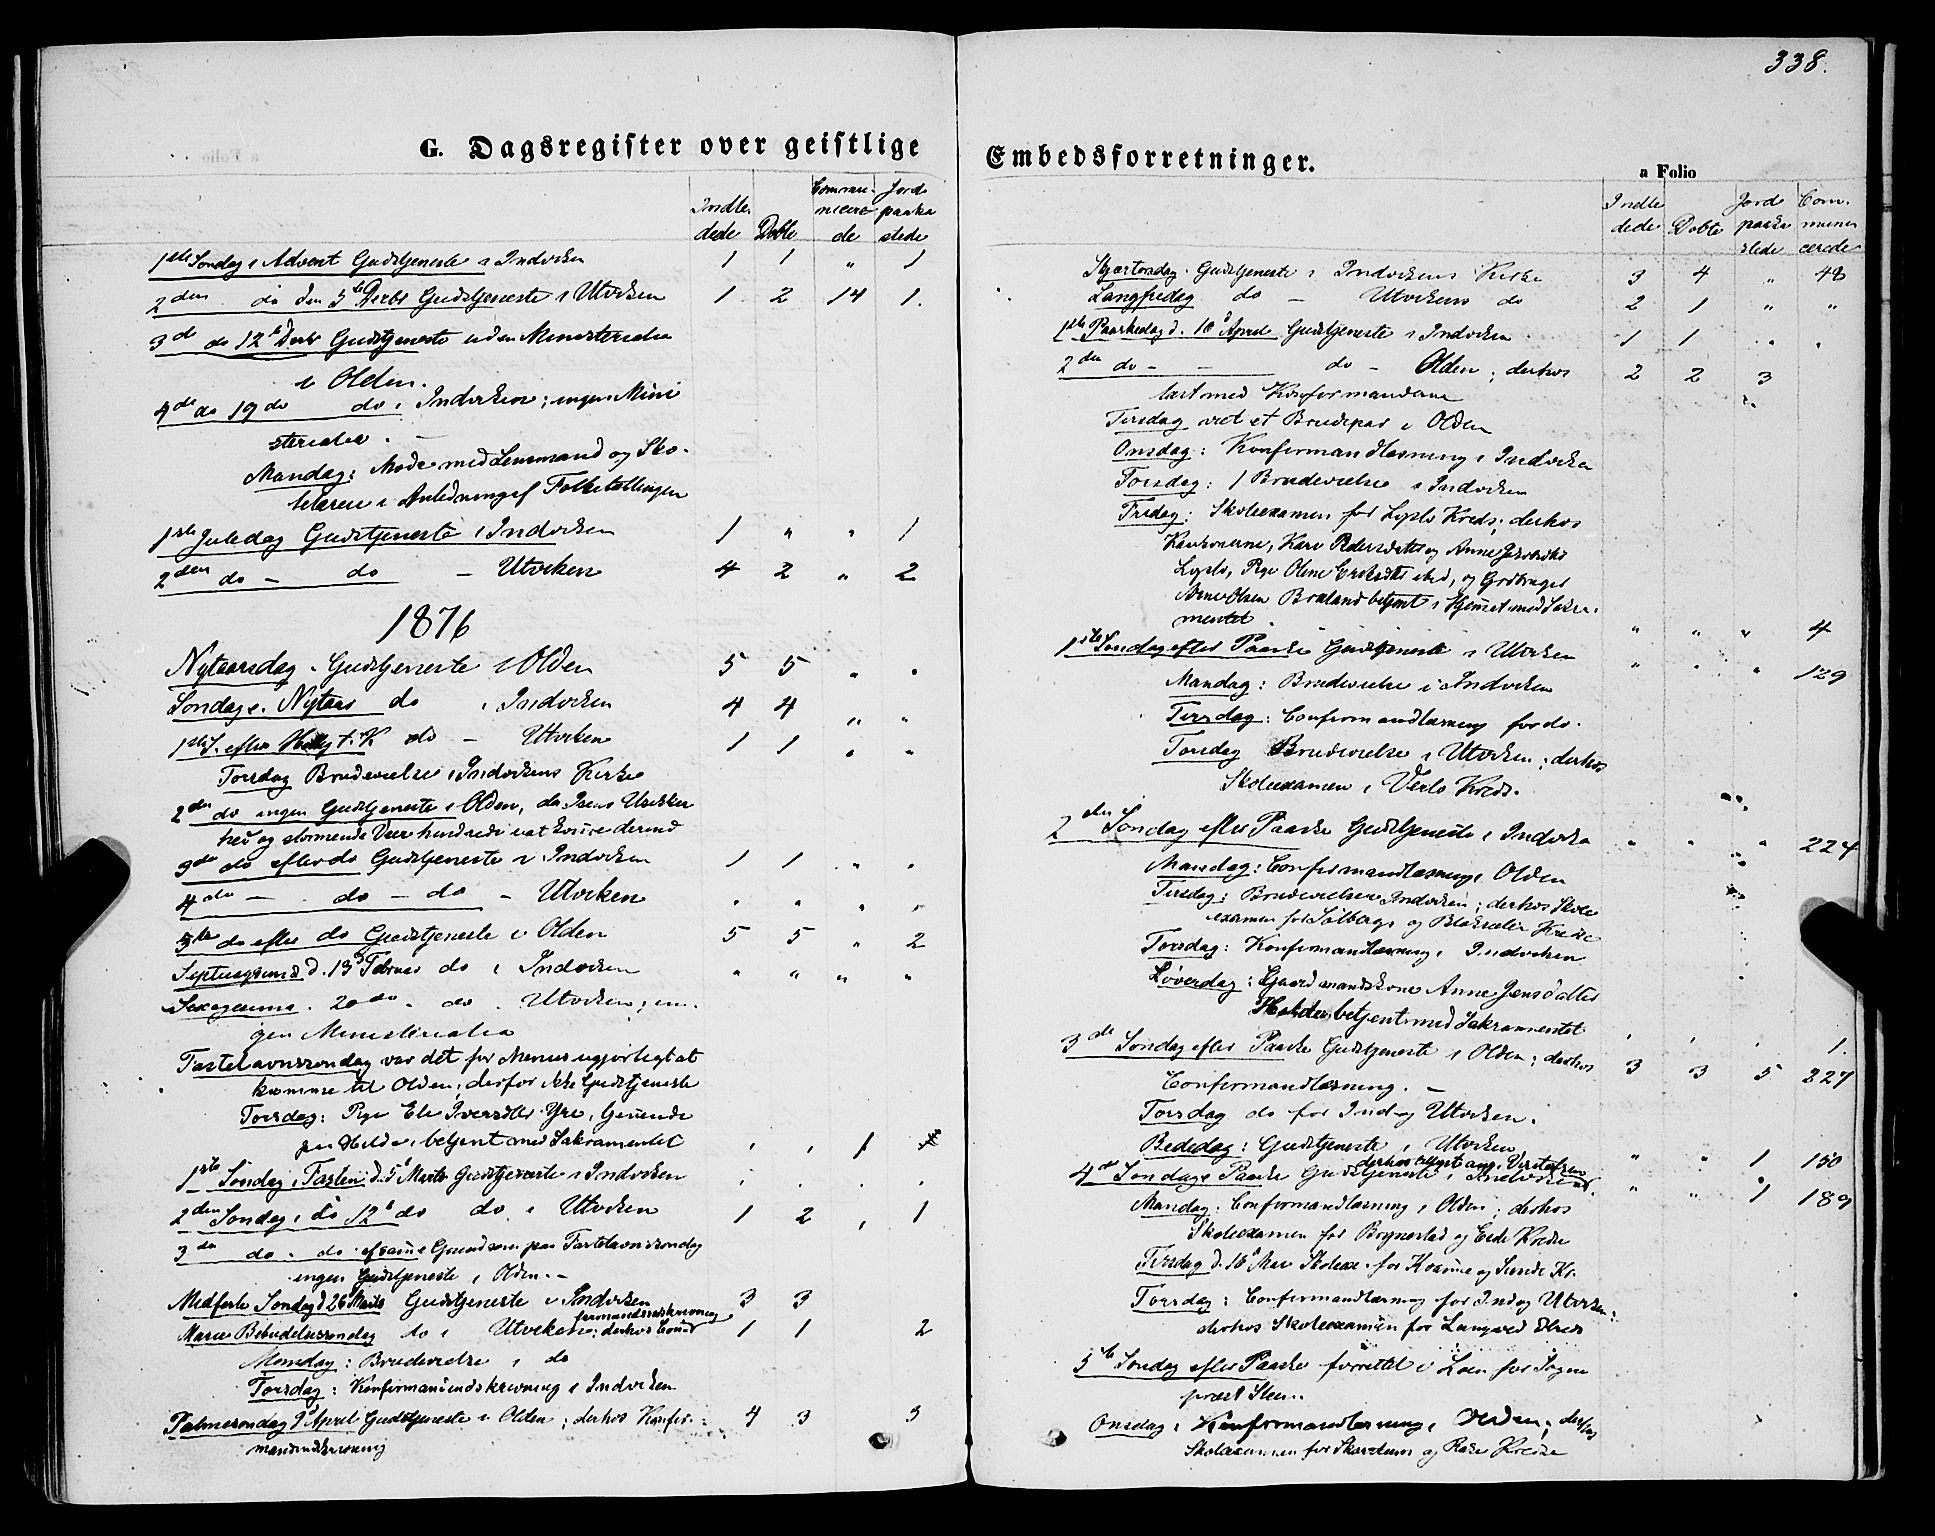 338.
G. Dagsregister over geistlige
Indle Døbte Commu- Jord
dede nicere paaka
de stede
1ste Søndag i Advent Gudstjeneste i Indviken 1 1 " 1
2den do den 5te Decbr Gudstjeneste i Utviken 1 2 14 1.
3de do 12te Decbr Gudstjeneste uden Ministerialia
i Olden.
4de do 19de do i Indviken; ingen Mini
sterialia.
Mandag: Møde med Lensmand og Sko-
lelærere i Anledning af Folketællingen
1ste Juledag Gudstjeneste i Indviken 1 " " 1
2den do - do - Utviken 4 2 " 2
1876
Nytaarsdag. Gudstjeneste i Olden 5 5 " "
Søndag e. Nytaar do i Indviken 4 4 " "
1ste S. efter Hellig t. K do - Utviken 1 1 " "
Torsdag Brudevielse i Indvikens Kirke
2den do ingen Gudstjeneste i Olden, da Isens Usikker
hed og stormende Veir hindrede at komme derind
3de do efter do Gudstjeneste i Indviken 1 1 " "
4de - do - do - Utviken " " " "
5te do efter do Gudstjeneste i Olden 5 5 " 2
Septuagesima d. 13de Februar do i Indviken " " " "
Sexagesima. 20de. do. Utviken; in-
gen Ministerialia
Fastelavnssøndag var det for Menis ugjørligt at
komme til Olden; derfor ikke Gudstjeneste
Torsdag: Pige Eli Iversdtr Yri,
paa Hilde, betjent med Sakramentet " " 1
1ste Søndag i Fasten d. 5te Marts Gudstjeneste i Indviken " " " "
2den Søndag i do 12te do do i Utviken 1 2 " 1
3de do. do. af samme Grund som paa Fastelavnssøndag
ingen Gudstjeneste i Olden. -
Midfaste Søndag d 26de Marts Gudstjeneste i Indviken 3 3
Mariæ Bebudelsessøndag do i Utviken; derhos Conf 1 1 2
irmandindskrivning
Mandag: Brudevielse i do
Torsdag: Konfirmanindskrivning i Indviken
Palmesøndag 9de April Gudstjeneste i Olden; derhos Konfir- 4 3 3
mandindskrivning
Embedsforretninger.
a Folio
Indle Døbte Jord Com-
dede paaka munic
stede erede
Skjærtorsdag. Gudstjeneste i Indvikens Kirke 3 4 " 48
Langfredag do - Utvikens do 2 1 " "
1ste Paaskedag d. 16de April Gudstjeneste i Indviken 1 1 " "
2den do - - do - Olden; derhos 2 2 3
læst med Konfirmanderne
Tirsdag viet et Brudepar i Olden
Onsdag: Konfirmandlæsning i Indviken
Torsdag: 1 Brudevielse i Indviken
Fredag: Skoleexamen for Lyslo Kreds; derhos
Kaarkonerne, Kari Pedersdtr og Anne Jakobsdtr
Lyslo, Pige Oline Eriksdtr ibid, og Grdbruger
Arne Olsen Bræland betjent i Hjemmet med Sakra-
mentet. " " " 4
1ste Søndag efter Paaske Gudstjeneste i Utviken " " " 129
Mandag: Brudevielse i Indviken
Tirsdag: Confirmandlæsning for do.
Torsdag Brudevielse i Utviken; derhos
Skoleexamen i Verlo Kreds.
2den Søndag efter Paaske Gudstjeneste i Indvika " " " 224
Mandag: Confirmandlæsning i Olden
Tirsdag: Brudevielse i Indviken; derhos Skole
examen for Solberg og Blaksæter Kredse
Torsdag: Konfirmanlæsning i Indviken
Løverdag: Gaardmandskone Anne Jensdatter
Hilde, betjent med Sakramentet " " " 1.
3de Søndag efter Paaske Gudstjeneste i Olden; derhos 3 3 5 227
Confirmandlæsning. -
Torsdag do for Ind og Utviken.
Bededag: Gudstjeneste i Utviken " " 1 150
4de Søndag e Paaske Gudstjeneste i Indviken. " " 1 189
Mandag: Confirmandlæsning i Olden; derhos
Skoleexamen for Brynestad og Eide Kredse
Tirsdag d. 16de Mai Skoleex. for Kvamme og Sunde Kr.
Torsdag: Confirmandlæsning for Ind og Utviken;
derhos Skoleexamen for Langved Kreds
5te Søndag efter Paaske forrettet i Loen for Sogne
præst Steen.
Onsdag: Konfirmandlæsning i Olden; derhos
Skoleexamen for Skarstein og Rake Kredse